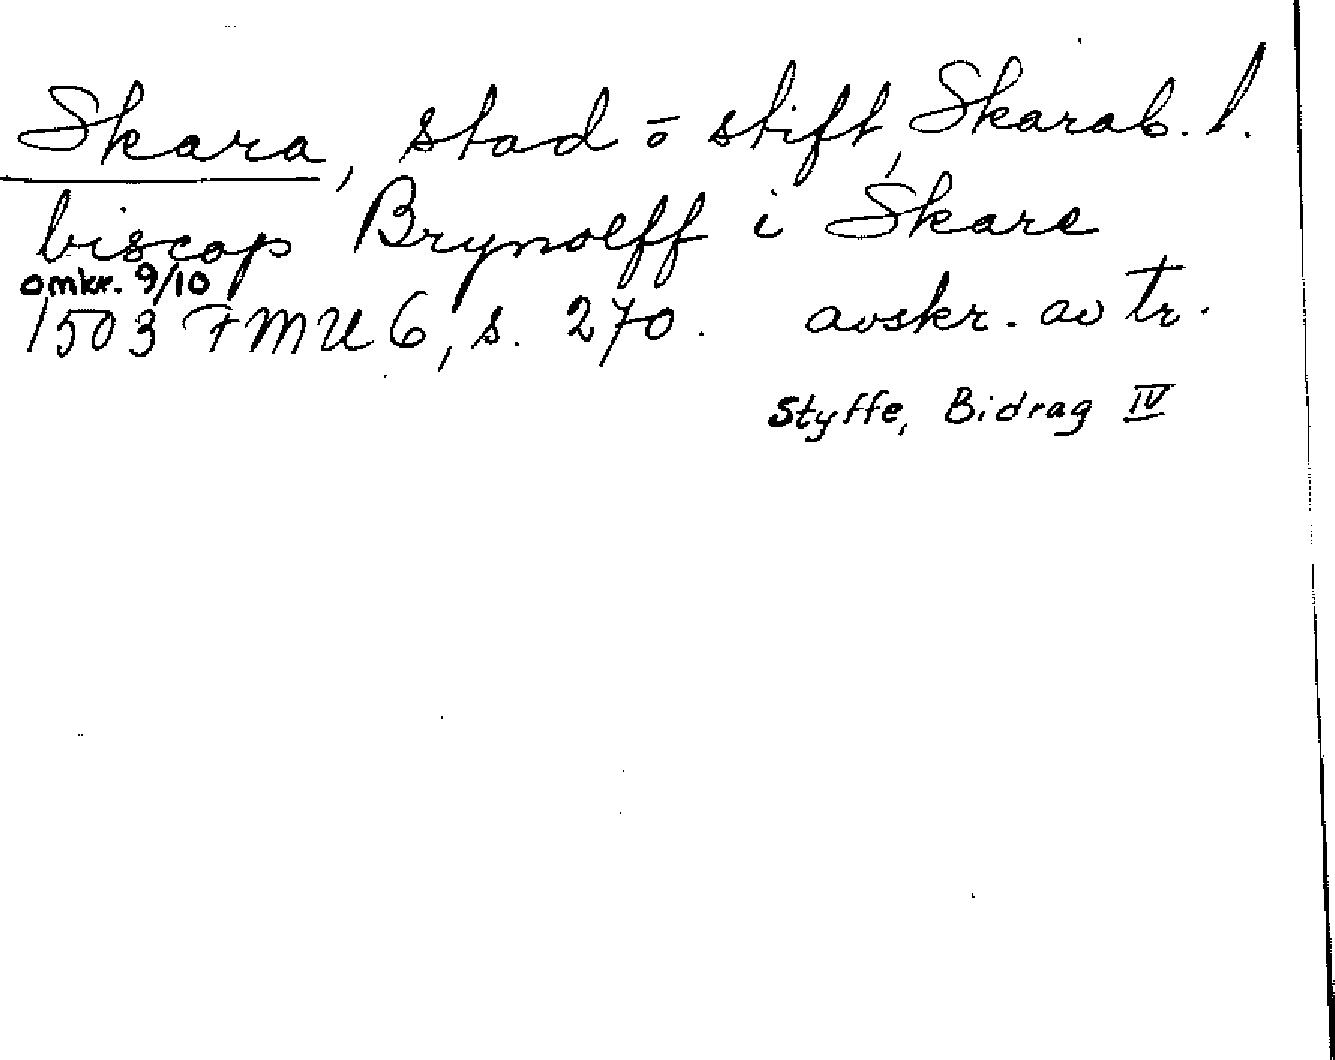 Skara, stad ō stift, Skarab. l.
biscop Brynolff i Skare
omkr. 9/10
1503 FMU 6, s. 270. avskr. av tr.
Styffe, Bidrag IV